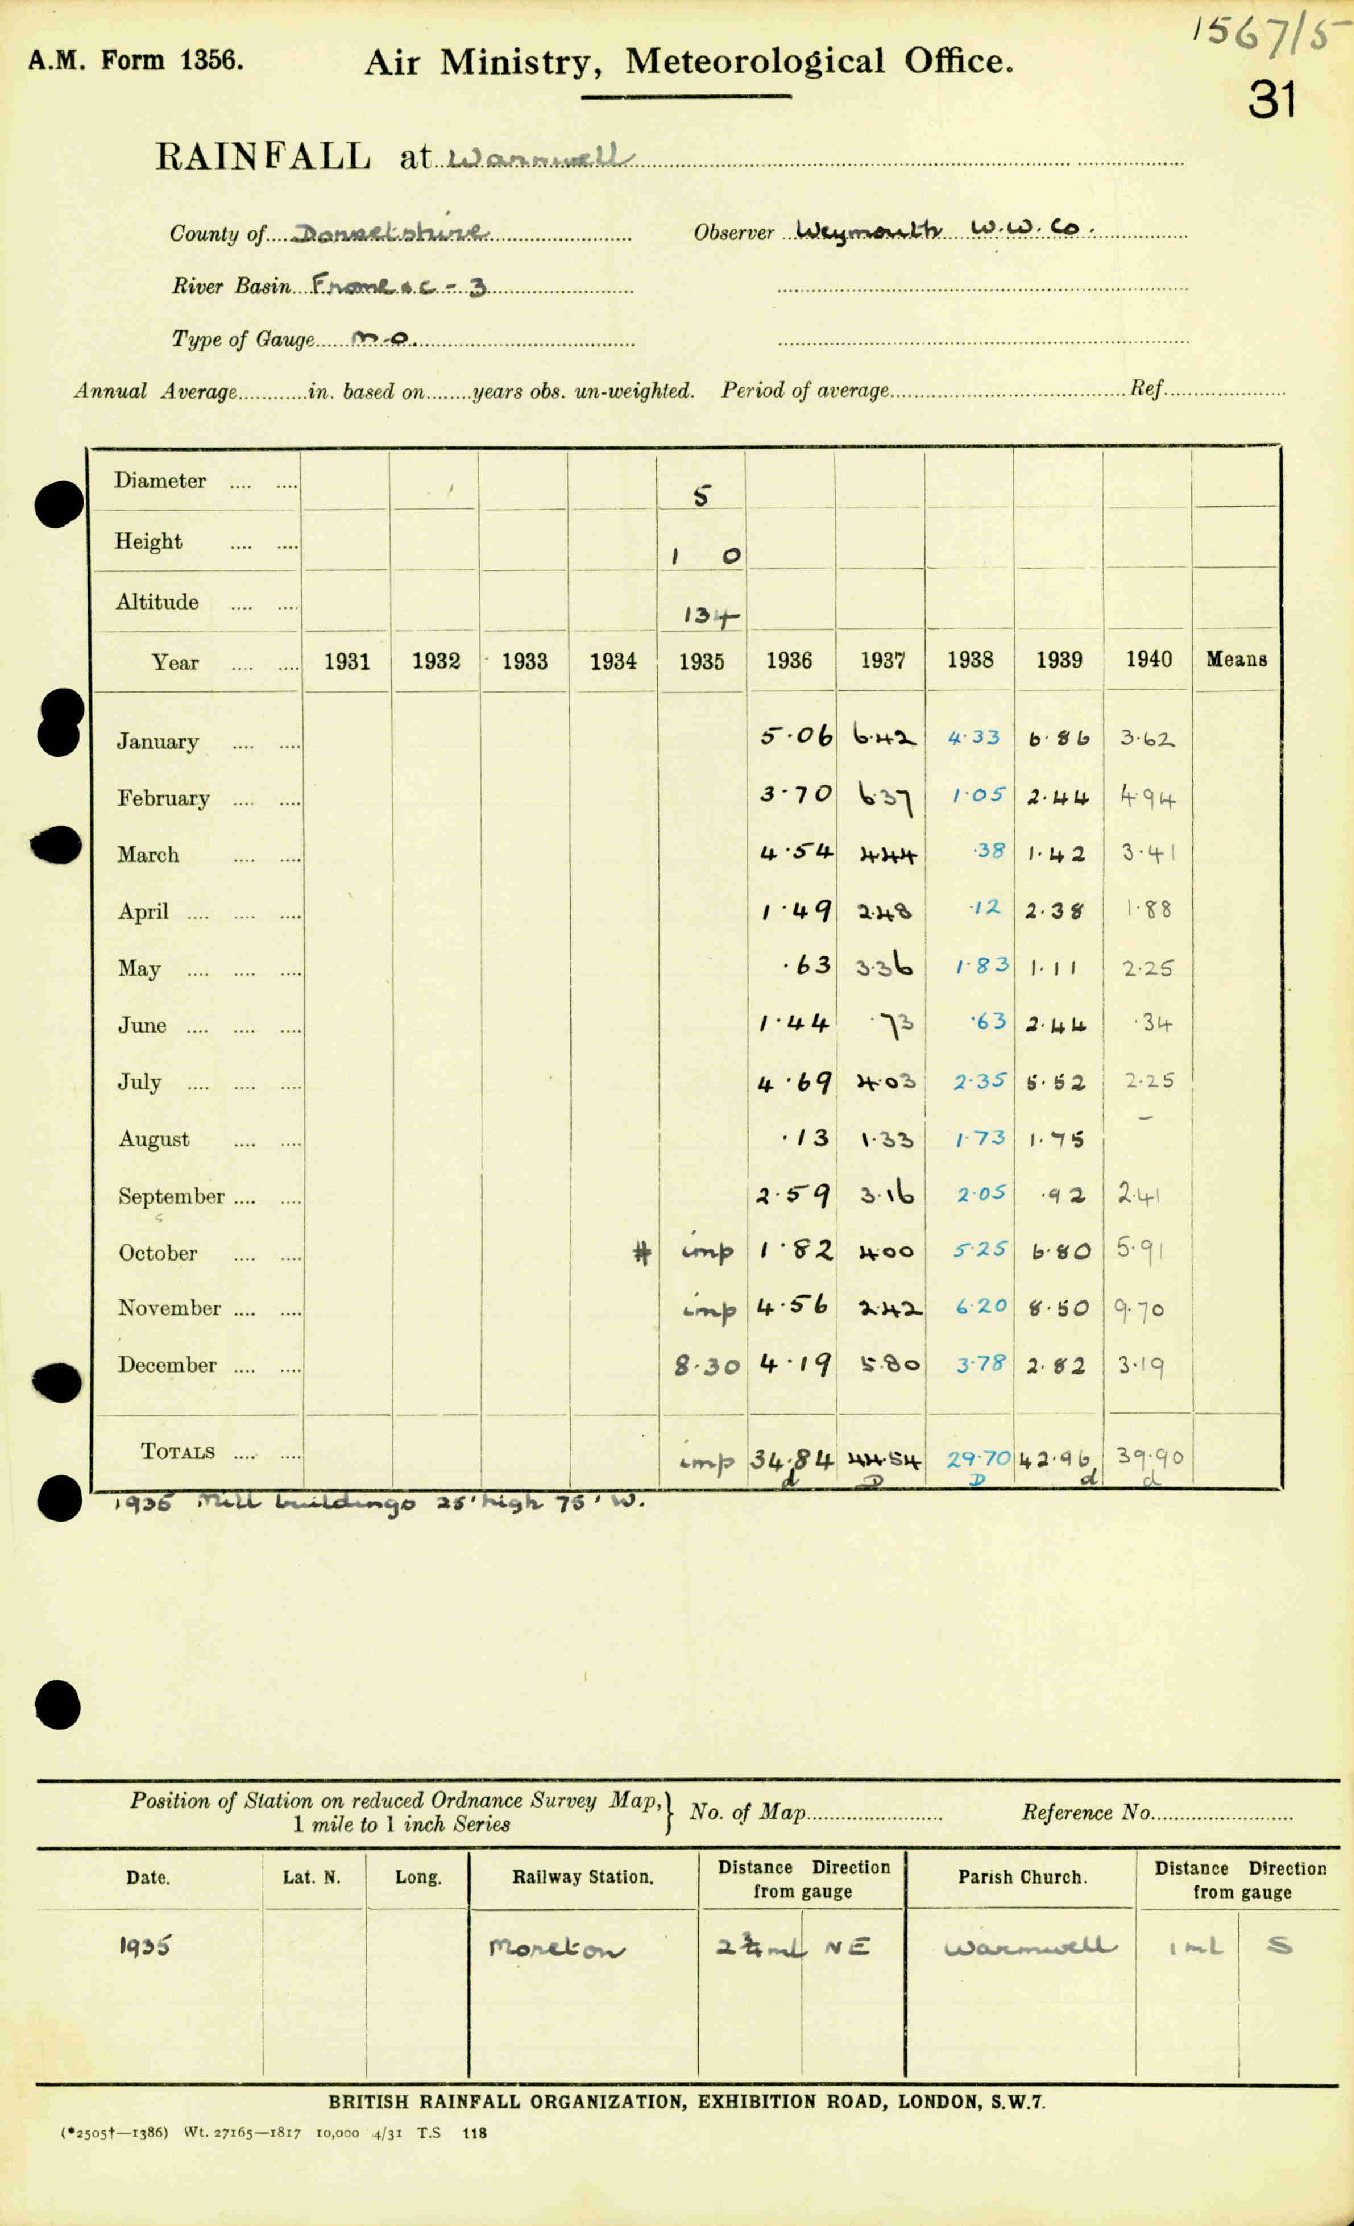 1567/5
A.M. Form 1356. Air Ministry, Meteorological Office.
31
RAINFALL at Warmwell
County of Dorsetshire Observer Weymouth W.W. Co.
River Basin Frome &c - 3
Type of Gauge M.O.
Annual Average in. based on years obs. un-weighted. Period of average Ref.
Diameter 5
Height 1 0
Altitude 134
Year 1931 1932 1933 1934 1935 1936 1937 1938 1939 1940 Means
January 5.06 6.42 4.33 6.86 3.62
February 3.70 6.37 1.05 2.44 4.94
March 4.54 4.44 .38 1.42 3.41
April 1.49 2.48 .12 2.38 1.88
May .63 3.36 1.83 1.11 2.25
June 1.44 .73 .63 2.44 .34
July 4.69 4.03 2.35 5.52 2.25
August .13 1.33 1.73 1.75 –
September 2.59 3.16 2.05 .92 2.41
October # imp 1.82 4.00 5.25 6.80 5.91
November imp 4.56 2.42 6.20 8.50 9.70
December 8.30 4.19 5.80 3.78 2.82 3.19
TOTALS imp 34.84 44.54 29.70 42.96 39.90
d D D d d
1935 Mill buildings 25' high 75' W.
Position of Station on reduced Ordnance Survey Map, } No. of Map Reference No.
1 mile to 1 inch Series
Date. Lat. N. Long. Railway Station. Distance Direction from gauge Parish Church. Distance Direction from gauge
1935 Moreton 2¾ ml NE Warmwell 1 ml S
BRITISH RAINFALL ORGANIZATION, EXHIBITION ROAD, LONDON, S.W.7.
(*2505†—1386) Wt. 27165—1817 10,000 4/31 T.S 118